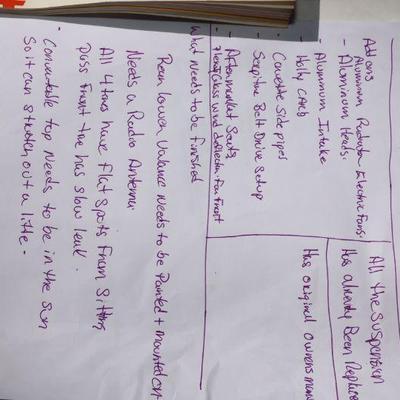 Add ons
Aluminum Radiator Electric Fans.
- Aluminum Heads.
Holly Carb
Aluminum Intake
Corvette side pipes
Serptine Belt Drive Setup
Aftermarket Seats
Plexi Glass wind deflector For Front
What needs to be finished
Rear lower Valance needs to be Painted + mounted on
Needs a Radio Antenna
All 4 tires have Flat Spots From Sitting
pass Front tire has slow leak.
- Convertable top needs to be in the Sun
So it can stretch out a little -
All the Suspension
Has already Been
Has original owners